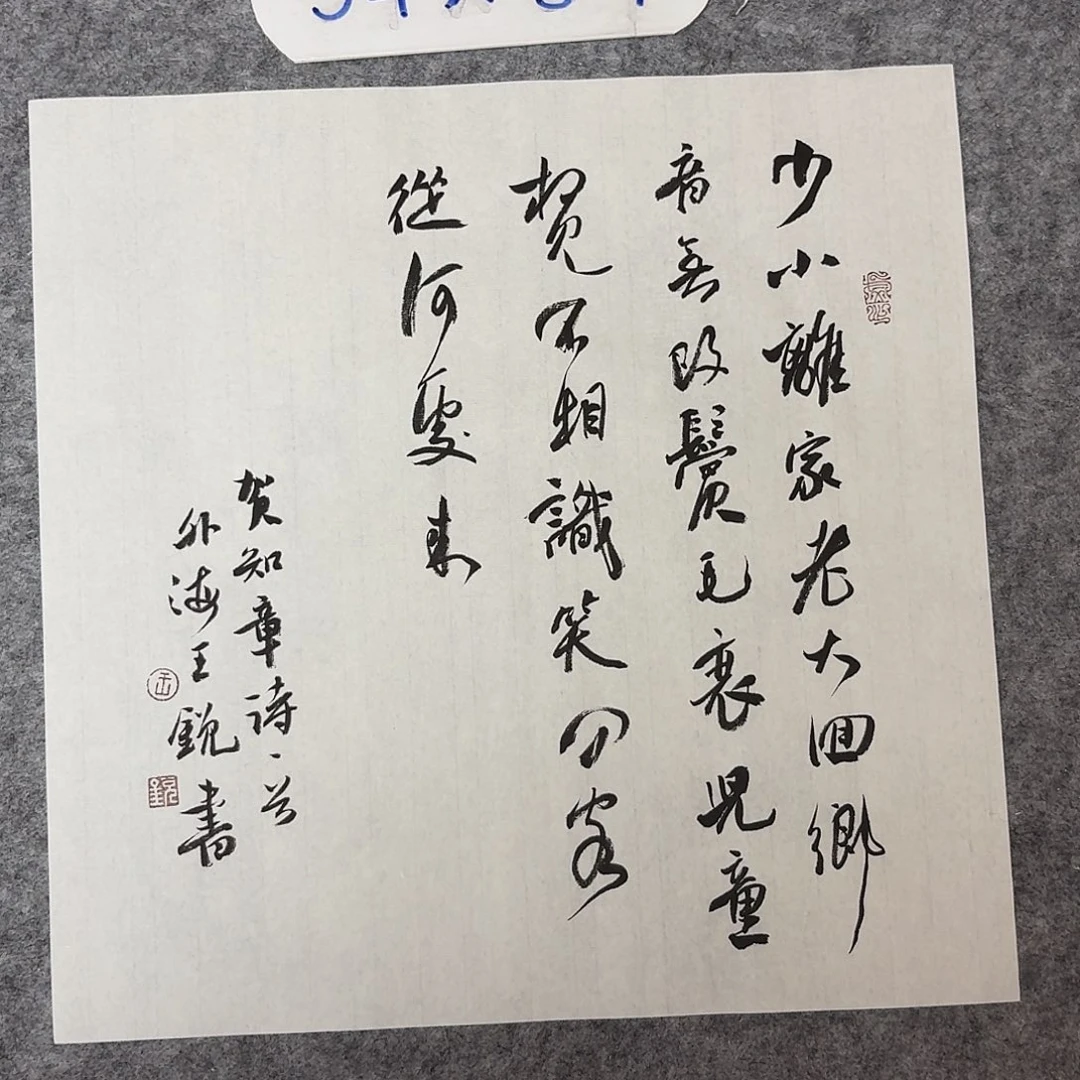 少小離家老大囬鄉
音無改鬢毛衰兒童
相見不相識笑問客
從何處來
賀知章詩一首
外海王銳書